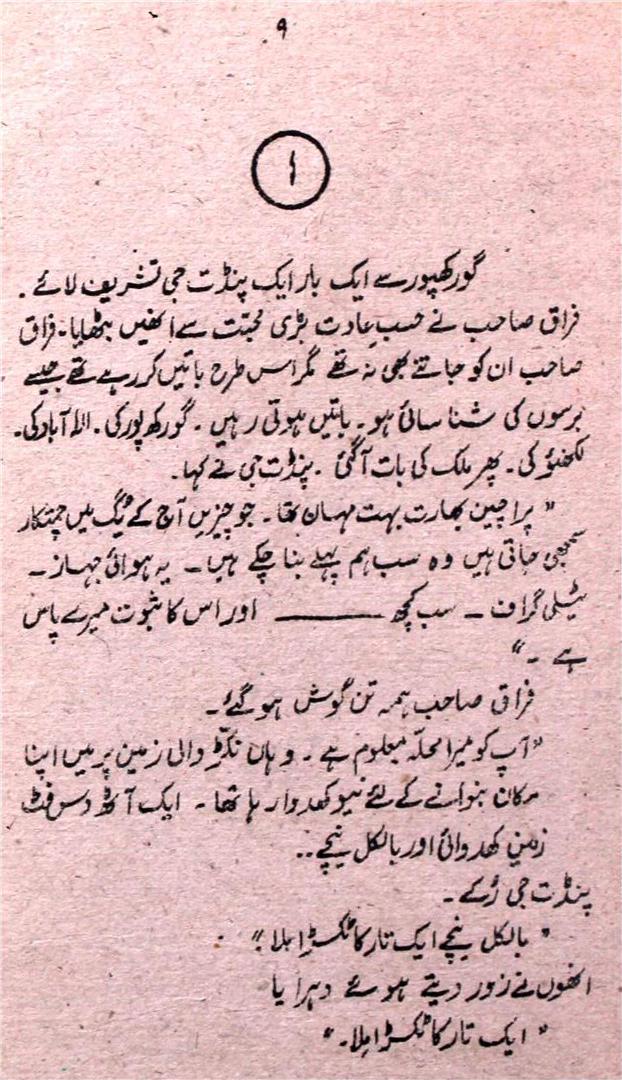 ۹
۱
گورکھپور سے ایک بار ایک پنڈت جی تشریف لائے .
فراق صاحب نے حسبِ عادت بڑی محبّت سے انھیں بٹھایا۔ فراق
صاحب ان کو جانتے بھی نہ تھے مگر اس طرح باتیں کر رہے تھے جیسے
برسوں کی شناسائی ہو۔ باتیں ہوتی رہیں ۔ گورکھ پور کی۔ الہ آباد کی۔
لکھنؤ کی۔ پھر ملک کی بات آگئی ۔ پنڈت جی نے کہا۔
" پراچین بھارت بہت مہان تھا۔ جو چیزیں آج کے یُگ میں چمتکار
سمجھی جاتی ہیں وہ سب ہم پہلے بنا چکے ہیں۔ یہ ہوائی جہاز۔
ٹیلی گراف ۔ سب کچھ ــــــــــ اور اس کا ثبوت میرے پاس
ہے ۔ "
فراق صاحب ہمہ تن گوش ہو گئے۔
"آپ کو میرا محلّہ معلوم ہے ۔ وہاں نکڑ والی زمین پر میں اپنا
مکان بنوانے کے لئے نیو کھدوا رہا تھا ۔ ایک آٹھ دس فٹ
زمین کھدوائی اور بالکل نیچے ..
پنڈت جی رُکے ۔
" بالکل نیچے ایک تار کا ٹکڑا ملا "
انھوں نے زور دیتے ہوئے دہرایا
" ایک تار کا ٹکڑا مِلا۔ "